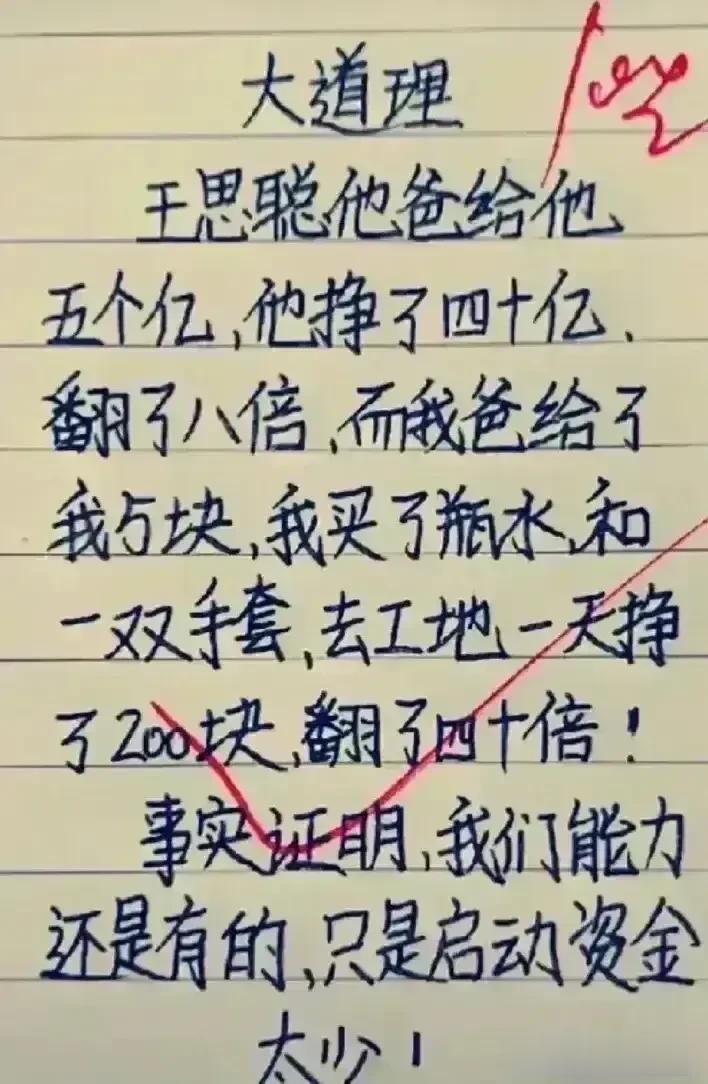 大道理
王思聪他爸给他
五个亿,他挣了四十亿.
翻了八倍,而我爸给了
我5块,我买了瓶水,和
一双手套,去工地一天挣
了200块,翻了四十倍!
事实证明,我们能力
还是有的,只是启动资金
太少!